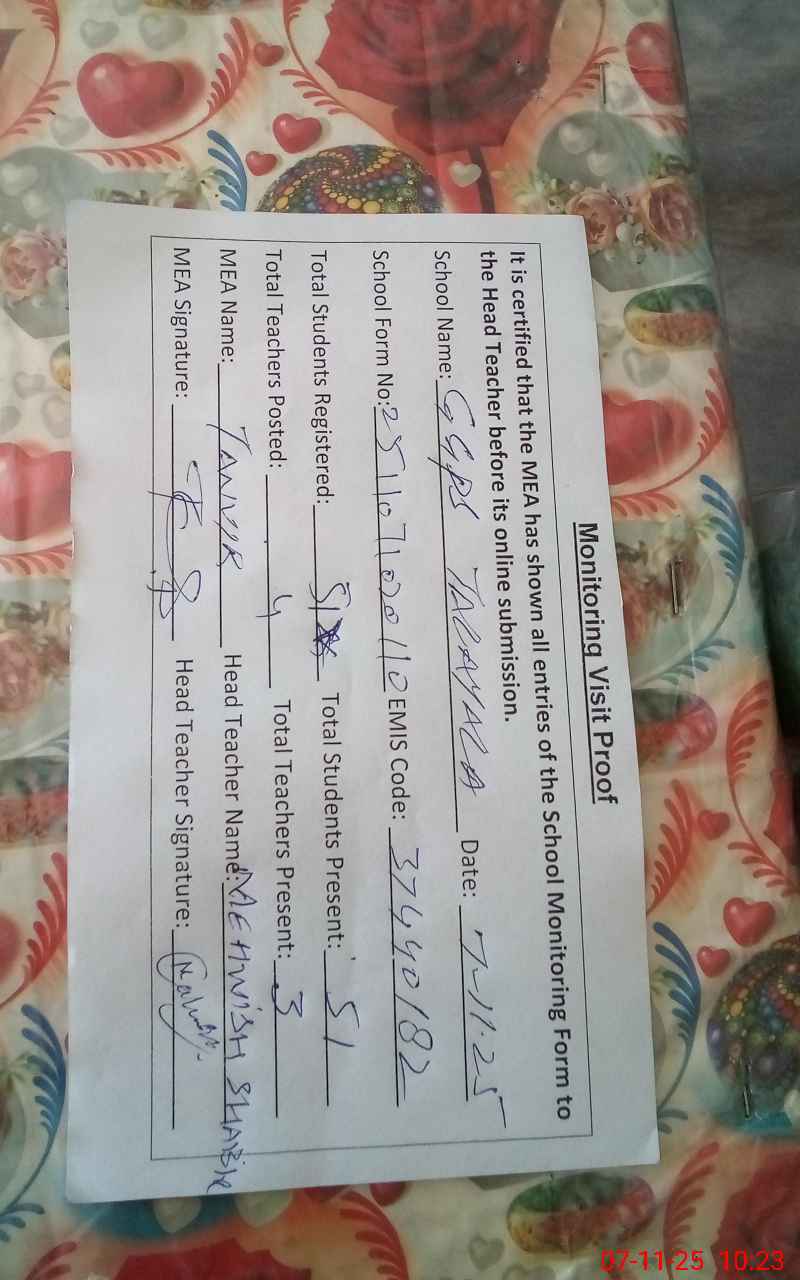 Monitoring Visit Proof
It is certified that the MEA has shown all entries of the School Monitoring Form to
the Head Teacher before its online submission.
School Name: GGPS TALAYALA Date: 7-11-25
School Form No: 2511071020110 EMIS Code: 37440182
Total Students Registered: 51 Total Students Present: 51
Total Teachers Posted: 4 Total Teachers Present: 3
MEA Name: TANVIR Head Teacher Name: MEHWISH SHABIR
MEA Signature: Head Teacher Signature:
07-11-25 10:23